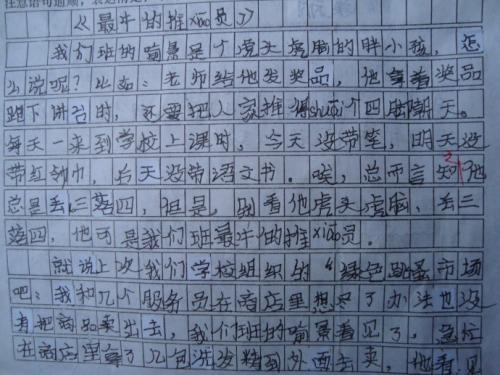 注意语句通顺，表达清楚
《最牛的推xiāo员》
我们班的喻景是个虎头虎脑的胖小孩，怎
么说呢？比如：老师给他发奖品，他拿着奖品
跑下讲台时，还要把人家推得shuāi个四脚朝天。
每天一来到学校上课时，今天没带笔，明天没
带红领巾，后天没带语文书。唉，总而言之，他
总是丢三落四，但是，别看他虎头虎脑、丢三
落四，他可是我们班最牛的推xiāo员。
就说上次我们学校组织的“绿色跳蚤市场
吧：我和几个服务员在商店里想尽了办法也没
有把商品卖出去，我们班的喻景看见了，急忙
在商店里拿了几包洗发精到外面去卖，他看见